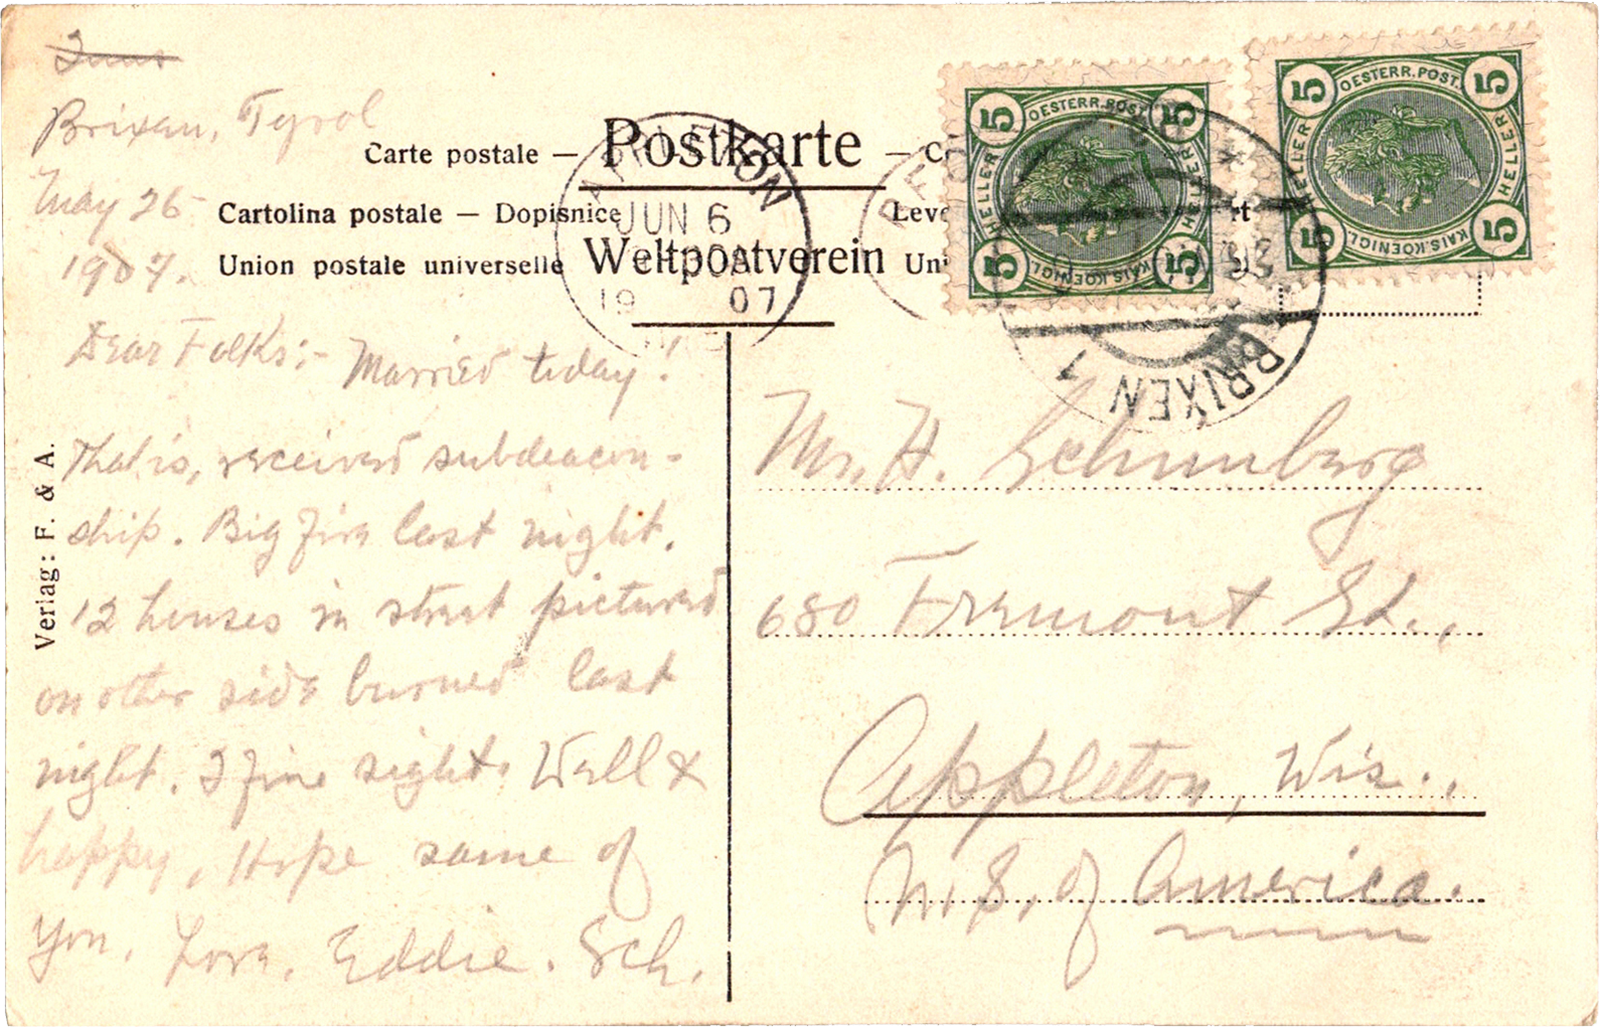 June
Brixen, Tyrol
May 26
1907.
Dear Folks:- Married today!
That is, received subdeacon-
ship. Big fire last night.
12 houses in street pictured
on other side burned last
night. I fine sight. Well &
happy, Hope same of
you. Love. Eddie. Sch.
Postkarte
Carte postale —
Cartolina postale — Dopisnice
Weltpostverein
Union postale universelle
Verlag: F. & A.
APPLETON
JUN 6
19 07
5 5
OESTERR. POST.
HELLER HELLER
KAIS. KOENIGL.
5 5
5 5
OESTERR. POST.
HELLER HELLER
KAIS. KOENIGL.
5 5
BRIXEN 1
Mr. H. Schumberg
680 Fremont St.,
Appleton, Wis.,
U. S. of America.